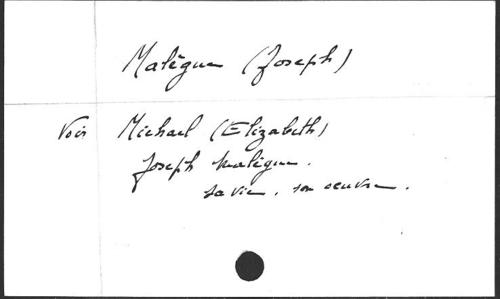 Malègue (Joseph)
Voir Michael (Elizabeth)
Joseph Malègue.
sa vie, son oeuvre.